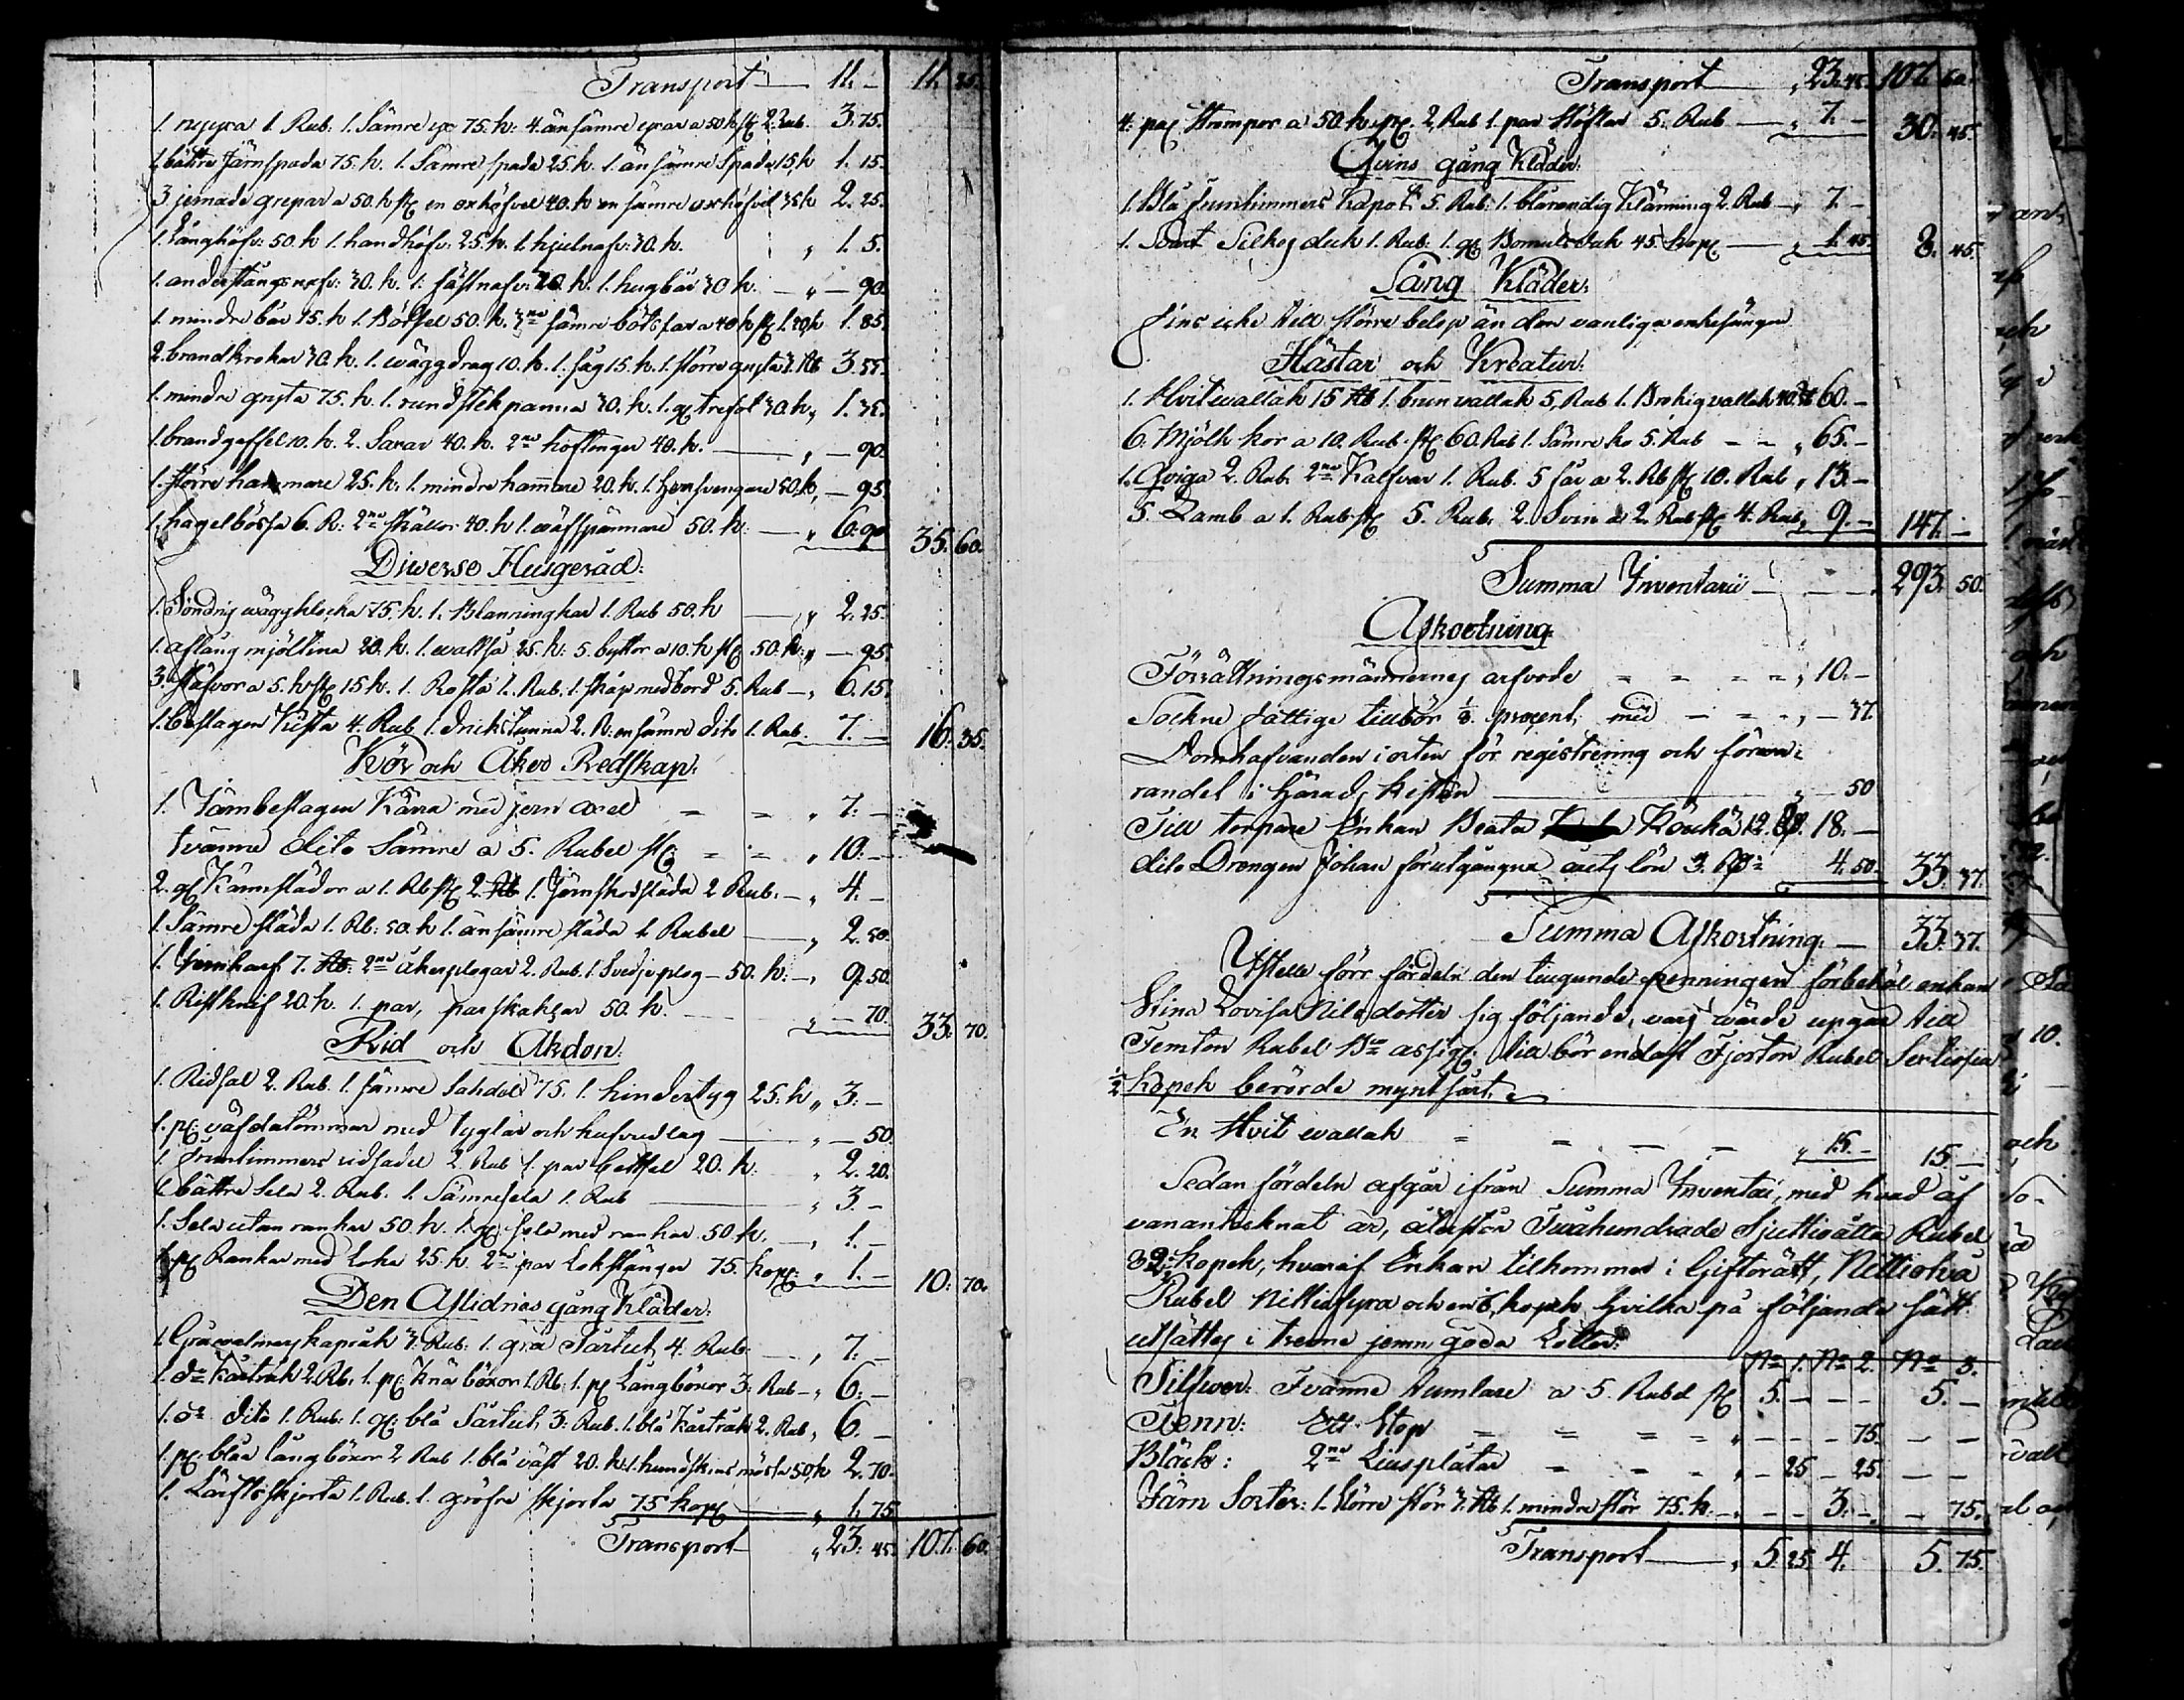 Transport — 11. — 11. 25.
1. ny yxa 1. Rub. 1. Sämre yx 75. k: 4. än sämre yxar a 50 k st 2. Rub. 3. 75.
1. bättre Järnspada 75. k. 1. Sämre spada 25. k. 1. än sämre Spada 15, k 1. 15.
3 jernade grepar a 50. k st en oxhöfvel 40. k en sämre oxhöfvel 35 k 2. 25.
1. Långhöfv: 50. k 1. handhöfv: 25. k. 1. hjulnafv: 30. k. „ 1. 5.
1. anderstångsnafv: 30. k. 1. fästnafv: 20. k. 1. hugbär 30 k. — „ — 90.
1. mindre bär 15. k 1. Bötsel 50. k. 3ne sämre böts a 40 k st 1. 20, k 1. 85.
2. brandkrokar 30. k. 1. wäggdrag 10. k. 1. såg 15. k. 1. större gryta 3. Rb 3. 55.
1. mindre gryta 75. k. 1. rund stekpanna 30. k. 1. gl trefot 30. k „ 1. 35.
1. brandgaffel 10. k. 2. Saxar 40. k. 2ne hoftänger 40. k. — „ — 90.
1. större hammare 25. k. 1. mindre hammare 20. k. 1. 50. k, — 95.
1. hagelbössa 6. R: 2ne skällor 40. k 1. 50. k: — „ 6. 90 35. 60.
Diverse Husgeråd:
1. Söndrig wäggklocka 75. k. 1. Blanning kar 1. Rub 50. k — „ 2. 25.
1. aflång mjöltina 20. k. 1. wattså 25. k: 5. byttor a 10. k st 50. k: „ — 95.
3. stäfvor a 5. k st 15 k. 1. Rosta 1. Rub. 1. skåp med bord 5. Rub —, 6. 15.
1. beslagen Kista 4. Rub 1. drickstunna 2. R: en sämre dito 1. Rub. 7. — 16. 35.
Kör och Åker Redskap.
1. Järnbeslagen Kärra med jern axel = = „ 7. —
tvänne dito Sämre a 5. Rubel st = = „ 10. —
2. gl Kärnslädor a 1. Rb st 2. Rb 1. Järnskodsläda 2 Rub. —, 4. —
1. Sämre släda 1. Rb: 50. k 1. än sämre släda 1 Rubel — „ 2. 50.
1. Jernharf 7. Rb: 2ne åkerplogar 2. Rub. 1. Svedjeplog — 50. k: —, 9. 50.
1. Ristknif 20. k. 1. par, parskaklar 50. k. — „ — 70. 33. 70.
Rid och Åkdon:
1. Ridsal 2. Rub. 1. sämre Sahdel 75. 1. hindertyg 25: k „ 3. —
1. pr väfdatömmar med tyglar och hufvudlag — „ — 50.
1. Fruntimmers ridsadel 2. Rub 1. par betssel 20. k: „ 2. 20.
1. bättre Sela 2. Rub. 1. Sämresela 1. Rub — „ 3. —
1. Sela utan rankar 50. k. 1. gl: sela med rankar 50. k. —, 1. —
1. pr Rankar med Loka 25. k. 2ne par Lokstänger 75. kop: „ 1. — 10. 70.
Den Aflidnes gång Kläder:
1. Grå kapråk 3. Rub: 1. grå Sürtut 4. Rub: —, 7. —
1. do Kasträk 2. Rb. 1. pr Knä böxor 1. Rb: 1. pr Långböxor 3: Rub —, 6. —
1. do dito 1. Rub: 1. gl: blå Sürtut, 3: Rub. 1. blå Kasträk 2. Rub, 6. —
1. pr blåa långböxor 2 Rub 1. blå väst 20. k. 1. hundskins mössa 50, k 2. 70.
1. Lärftsskjorta 1. Rub. 1. gröfre skjorta 75 kop — „ 1. 75
Transport — „ 23. 45. 107. 60.
Transport — „ 23. 45. 107. 60.
4. par Strumpor a 50. k. pr. 2, Rub 1. par Stöflar 5. Rub —, 7. — 30. 45.
Qvins gång Kläder:
1. Blå fruntimmers Kapot. 5. Rub: 1. blårandig Klänning 2. Rub —, 7. —
1. Svart Silkes duk 1. Rub: 1. gl Bomulsduk 45. kop — „ 1. 45. 8. 45.
Säng Kläder:
fins icke till större belop än den vanliga enkesängen
Hästar och Kreatur:
1. Hvit wallak 15 Rb 1. brun vallak 5, Rub 1. Brokig vallak 40. Rb 60. —
6. Mjölk kor a 10. Rub. st 60. Rub 1. Sämre ko 5. Rub — — „ 65. —
1. Qviga 2. Rub. 2ne Kalfvar 1. Rub. 5 får a 2. Rb st 10. Rub „ 13. —
5. Lamb a 1. Rub st 5. Rub: 2. Svin a 2. Rub st 4. Rub „ 9. — 147. —
Summa Inventarii — — — 293. 50.
Afkortning:
Förrättningsmännernes arfvode = = = = „ 10. —
Sockne fattige tillbör 1/8 procent, med — = = „ — 37.
Domhafvanden i orten för registrering och förwa=
randet i Härads kistan — „ — 50
Till torpare Enkan Beata Koukä 12. Rb. 18. —
dito Drengen Johan förutgångna åretz lön 3. 4. 50. 33. 37.
Summa Afkortning. — 33. 37.
Istelle förr fördeln den tiugunde penningen förbehöl enkan
Stina Lovisa Nilsdotter sig följande, vars wärde upgår till
Femton Rubel Bco assig: till bör endast Fjorton Rubel Sextiofem
1/2 kopek berörde myntsort.
En Hvit wallak = = — — „ 15. — 15. —
Sedan fördeln afgår ifrån Summa Inventar, med hvad af
vanantecknat är, återstår Tuåhundrade Sjuttioåtta Rubel
82: kopek, hvaraf Enkan tilkommer i Giftorätt, Nittiotvå
Rubel Nittiofyra och en 6, kopek hvilka på följande sätt
utsättes i trenne jemn goda Lotter:
No 1. No 2. No 3.
Silfwer: Tvänne tumlare a 5. Rubel st 5. — — — 5. —
Tenn: Ett Stop = = = = „ — — — 75. — —
Bläck: 2ne Liusplåtar = — — „ — 25 — 25. — —
Järn Sorter: 1. större stör 3. Rb 1. mindre stör 75. k. — — — 3. — — 75.
Transport — „ 5. 25. 4. 5. 75.